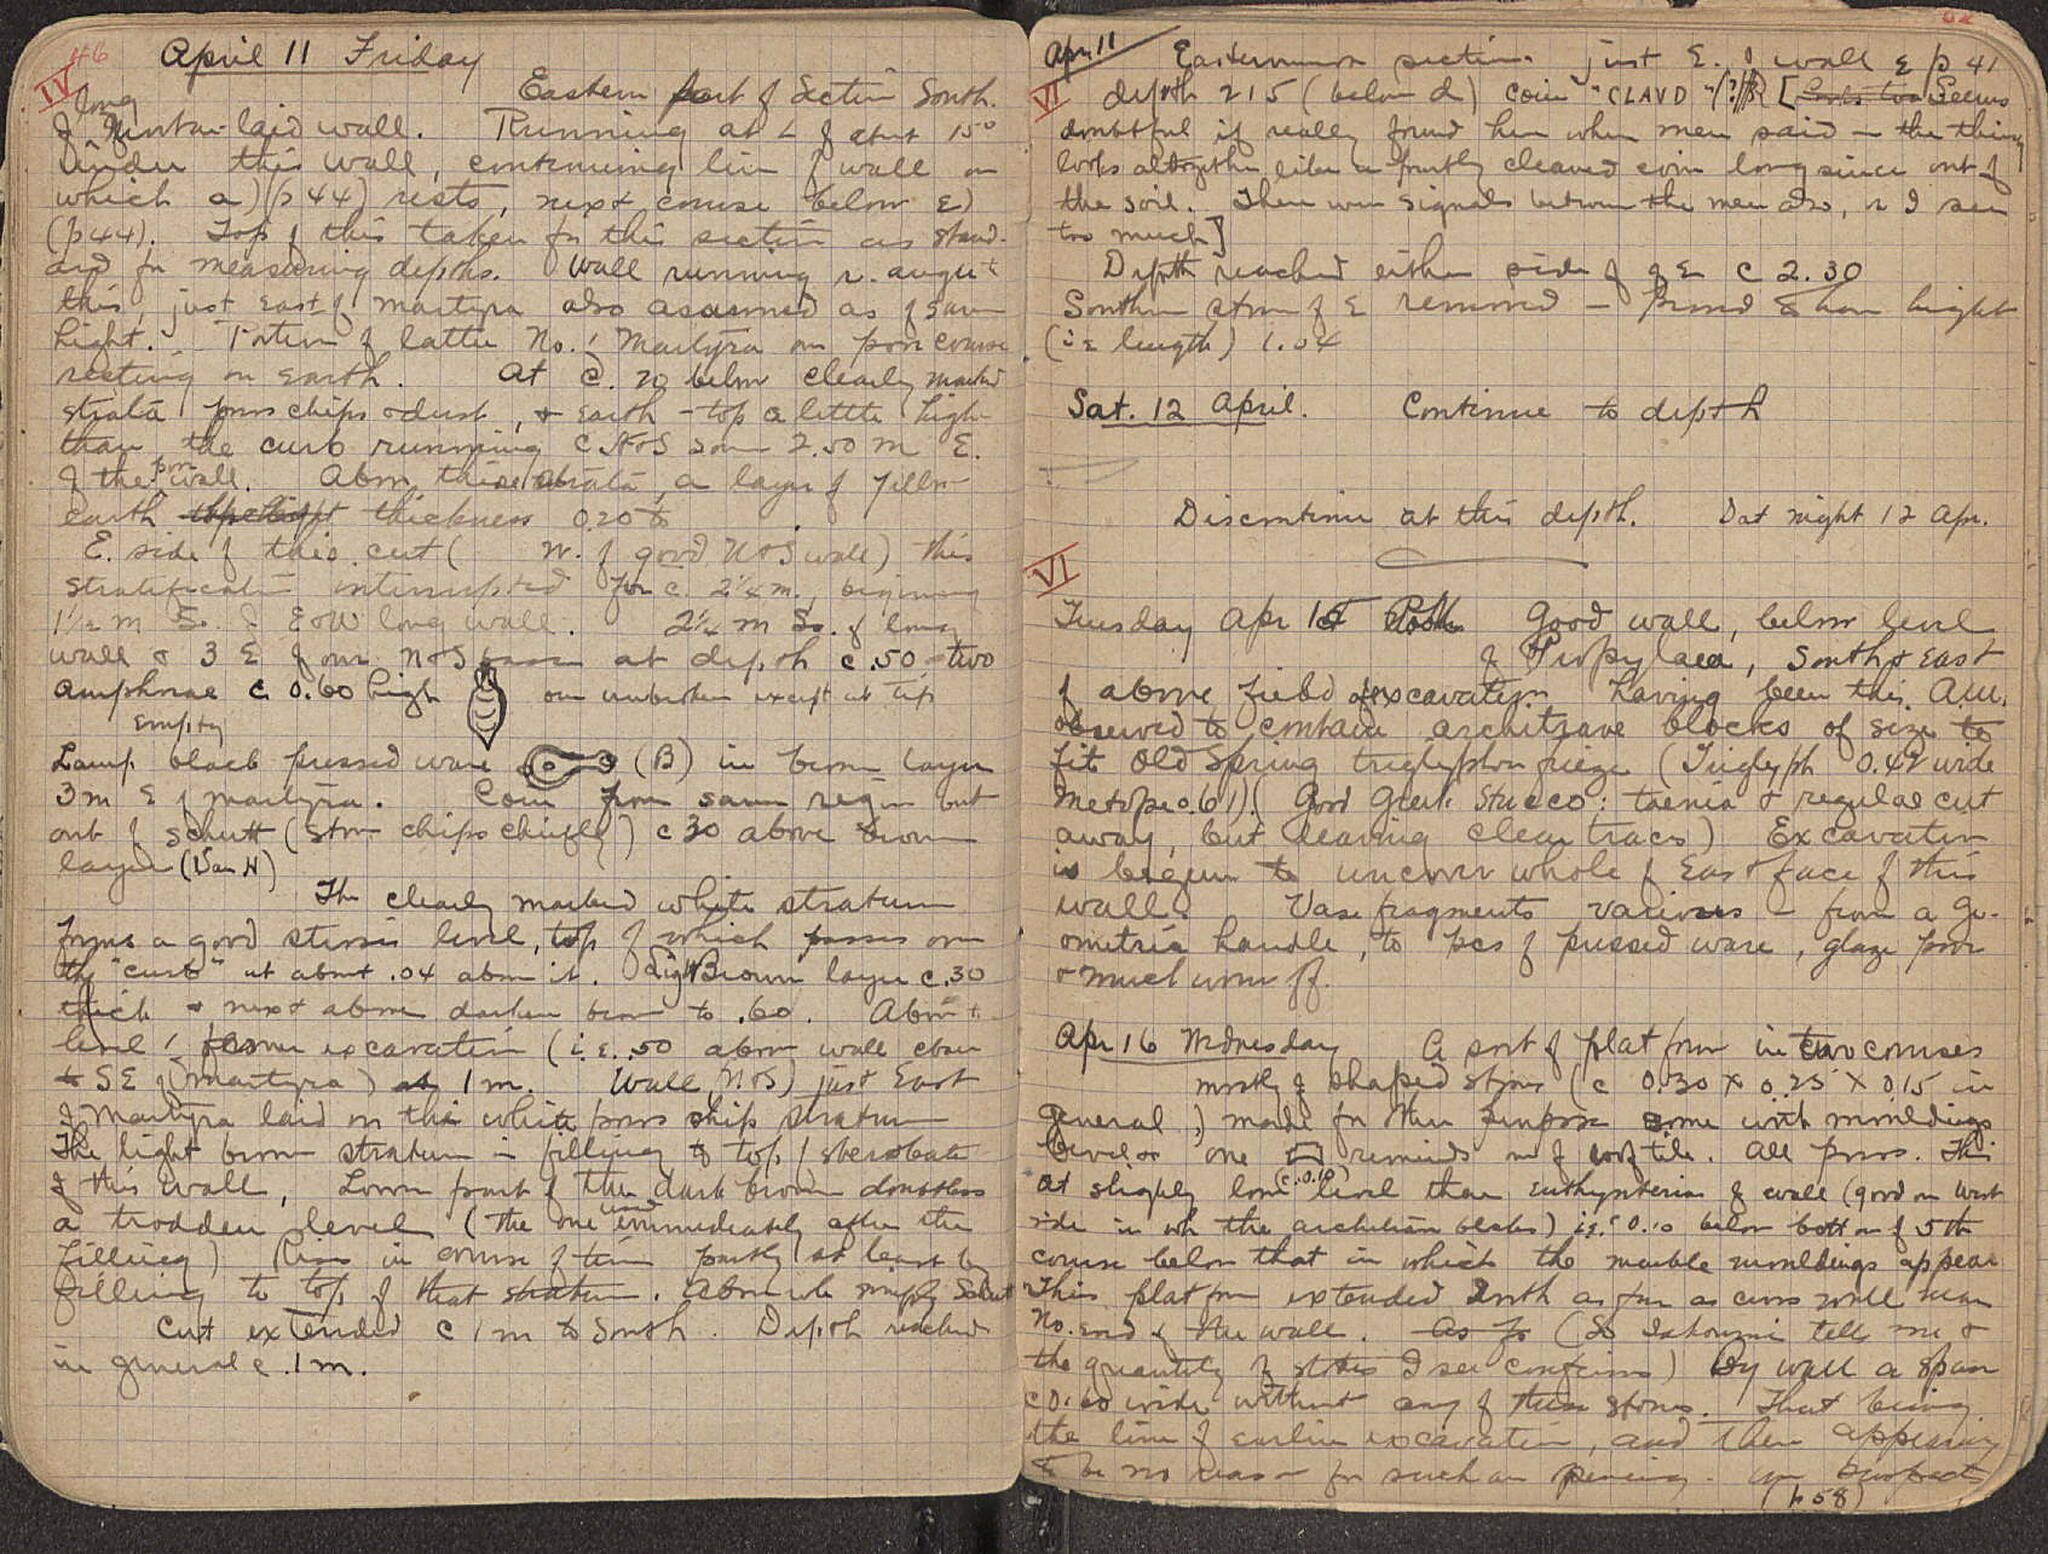 46
IV
April 11 Friday
Eastern part of Section South.
long
of laid wall. Running at L of about 15°
Under this wall, continuing line of wall on
which a) (p 44) rests, next course below ε)
(p 44). Top of this taken for this section as stand-
ard for measuring depths. Wall running
this, just East of martyra also assumed as of same
hight. of latter No. 1 Martyra on poros course
resting on earth. At c. 20 below clearly marked
strata poros chips & dust, & earth - top a little high-
than the curb running c N & S some 2.50 m E.
of the poros wall. Above these strata, a layer of yellow
earth thickness 0.20
E. side of this cut ( W. of good N & S wall) this
stratification interrupted for c. 2¼ m., beginning
1½ m S. of E & W long wall. 2¼ m So. of long
wall & 3 E of our N & S at depth c .50 two
amphorae c 0.60 high one unbroken except at tip
empty
Lamp black pressed ware (B) in brown layer
3 m E of martyra. Coin from same region but
out of schutt (stone chips chiefly) c 30 above brown
layer (Van H)
The clearly marked white stratum
forms a good level, top of which passes over
the "curb" at about .04 above it. Light Brown layer c .30
thick & next above darker brown to .60. About
level of former excavation (i.e. .50 above wall
to SE of martyra) 1 m. Wall (N & S) just East
of Martyra laid on this white poros chip stratum
The light brown stratum is filling to top of stereobate
of this wall, Lower part of the dark brown doubtless
a trodden level (the one used immediately after the
filling) Rise in course of time partly at least by
filling to top of that stratum. Above wh simply Schutt
Cut extended c 1 m to South. Depth reached
in general c .1 m.
Apr. 11 Easternmost section. just E. of wall ε p 41
VI depth 215 (below d) coin "CLAVD" [Seems
doubtful if really found here when men said - the thing
looks altogether like a partly cleaned coin long since out of
the soil. There were signals between the men also, or I see
too much]
Depth reached either side of ε c 2.30
Southern stone of ε removed - found to have hight
(i e length) 1.04
Sat. 12 April. Continue to depth
Discontinue at this depth. Sat night 12 Apr.
VI
Tuesday Apr 15 Good wall, below level
of Propylaea, South & East
of above field of excavation. Having been this A.M.
observed to contain architrave blocks of size to
fit Old Spring triglyphon frieze (Triglyph 0.42 wide
metope 0.61) (Good Greek Stucco: taenia & regulae cut
away, but leaving clear traces) Excavation
is begun to uncover whole of East face of this
wall. Vase fragments various - from a Ge-
ometric handle, to pcs of pressed ware, glaze poor
& much worn off.
Apr 16 Wednesday A sort of platform in two courses
mostly of shaped stones (c 0.30 X 0.25 X 0.15 in
general,) made for other purpose some with mouldings
bevel or one reminds me of roof tile. All poros. This
(c. 0.10)
at slightly lower level than euthynteria of wall (good on West
side in wh the architrave blocks) i.e. c 0.10 below bottom of 5th
course below that in which the marble mouldings appear
This platform extended North as far as cross wall near
No. end of the wall. (So tell me &
the quantity of stones I see confirms) By wall a span
c 0.60 wide without any of these stones. That being
the line of earlier excavation, and there appearing
to be no reason for such an opening.
(p 58)